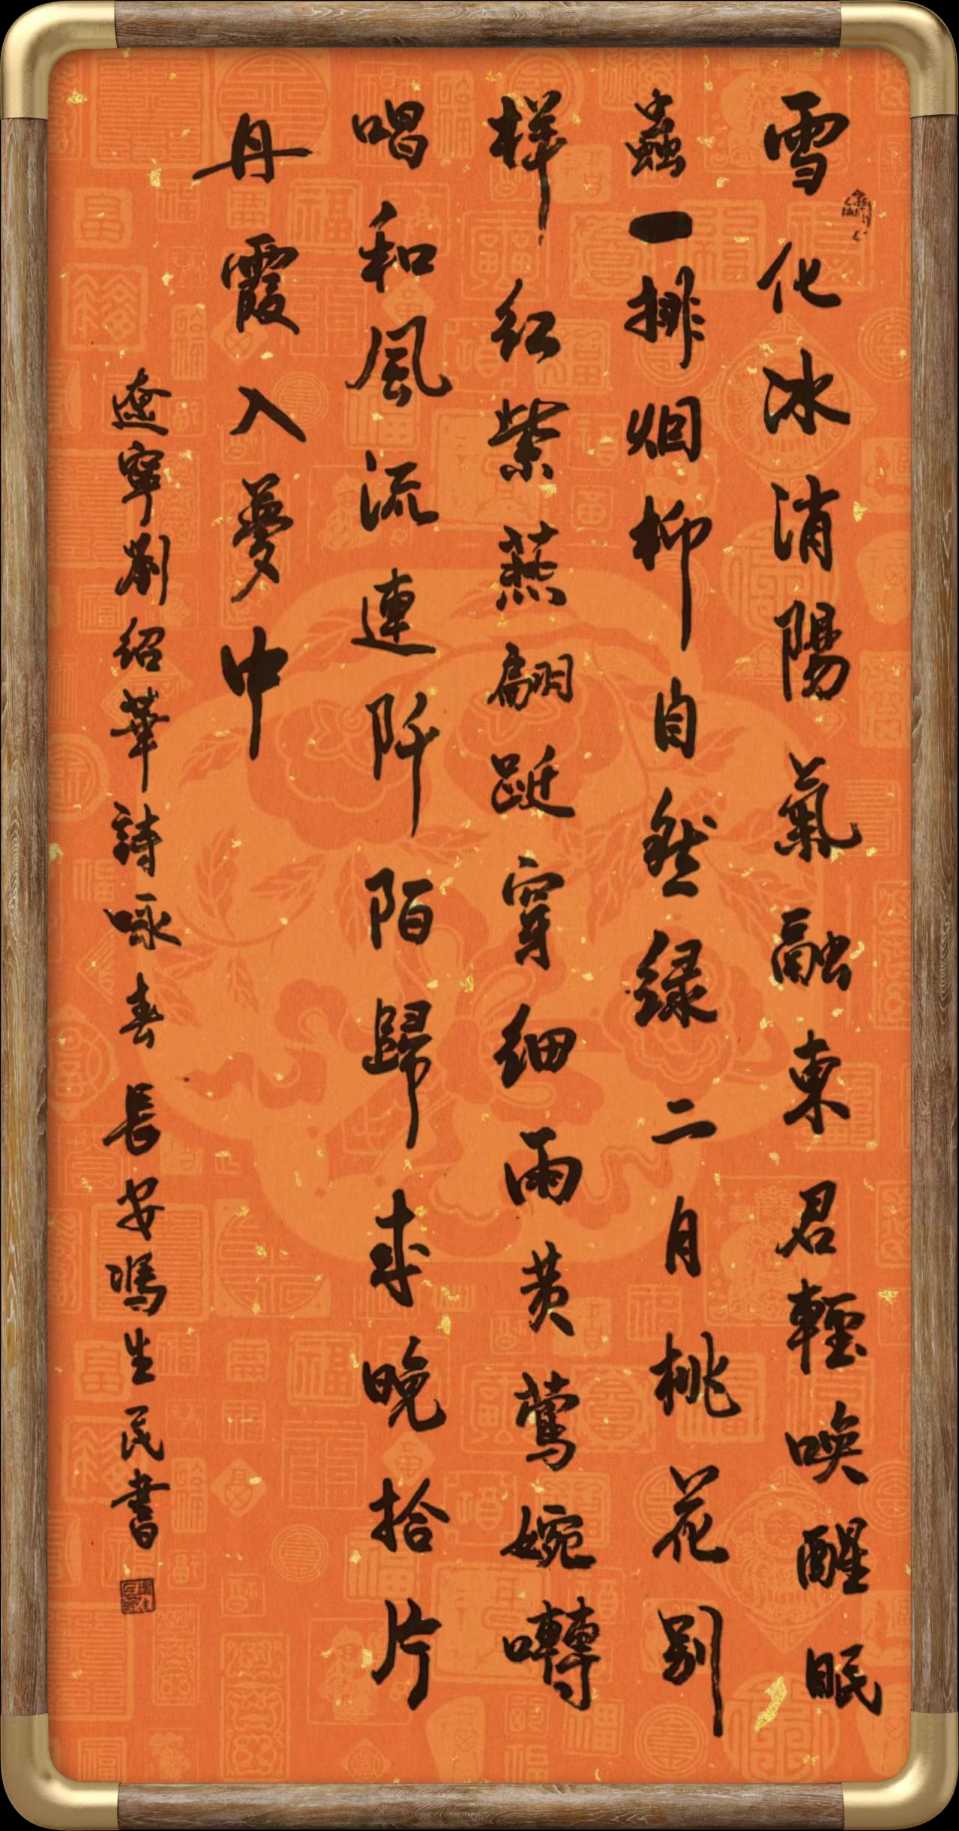 雪化冰消陽氣融東君輕喚醒眠
蟲一排烟柳自然緑二月桃花别
樣紅紫燕翩跹穿細雨黄莺婉囀
唱和風流連阡陌歸来晚拾片
丹霞入夢中
遼寧劉紹華詩咏春長安馮生民書